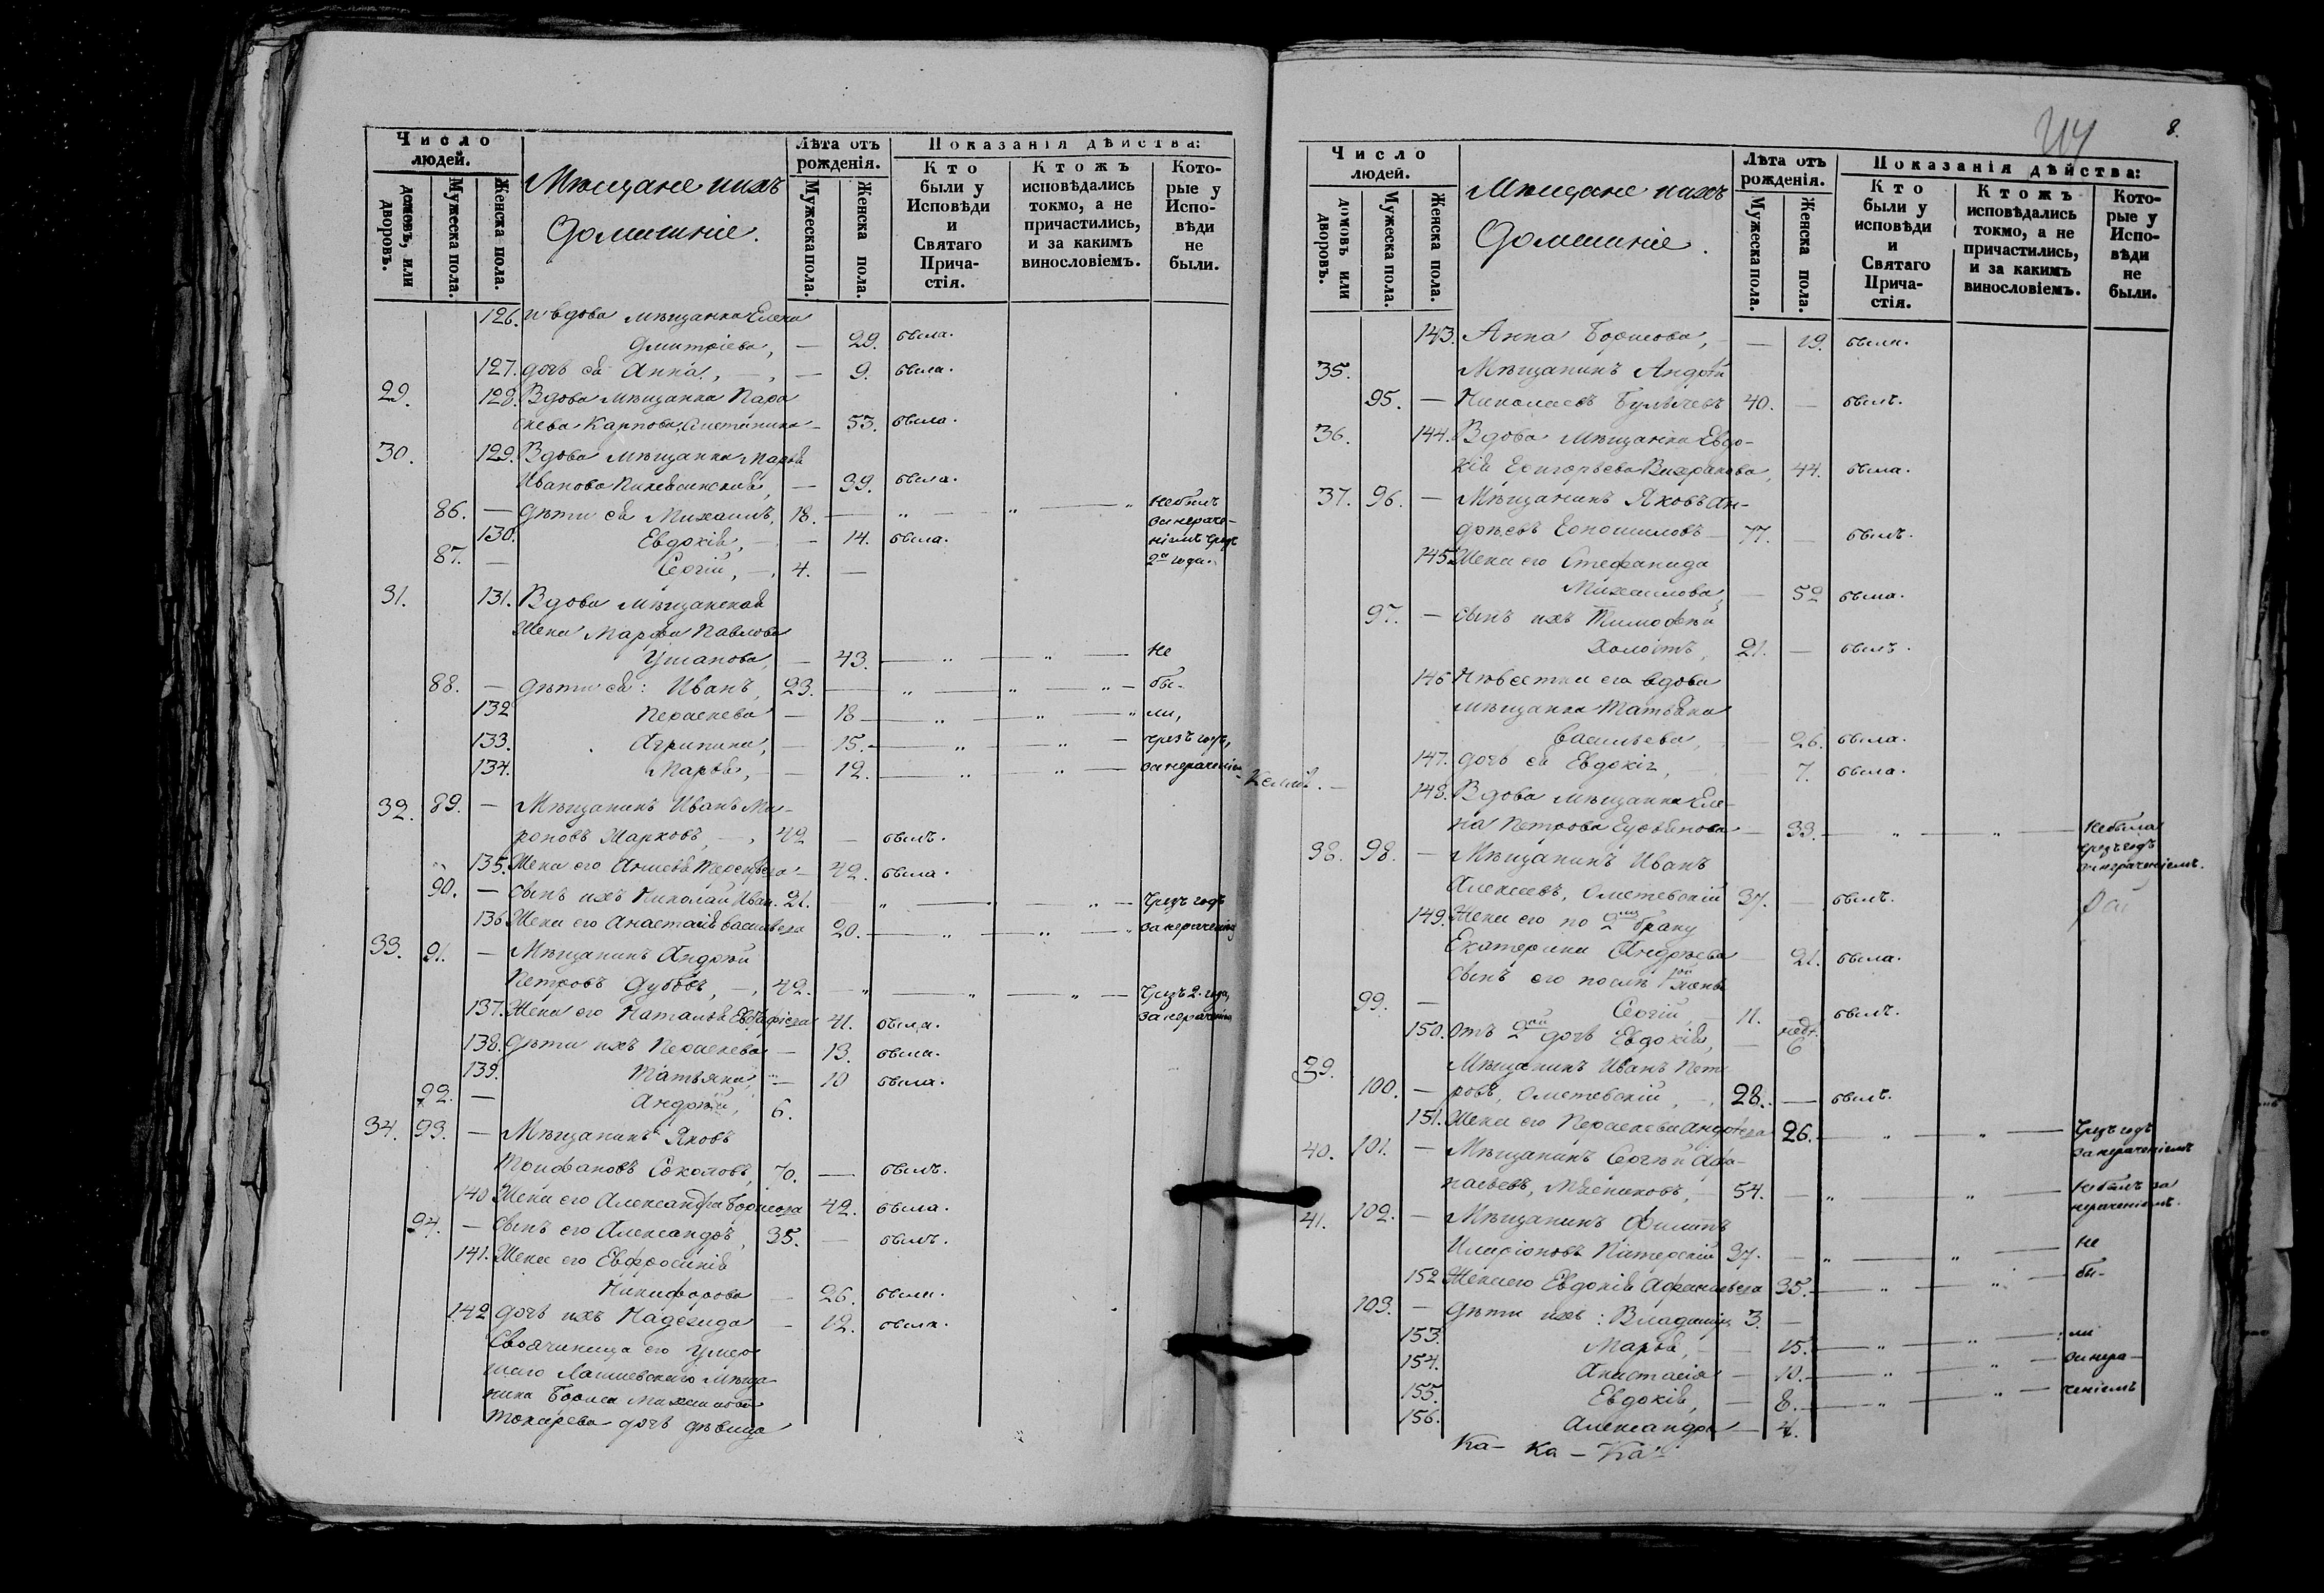 Число людей.
домовъ, или дворовъ.
Мужеска пола.
Женска пола.
Мѣщане и ихъ
Домашніе.
Лѣта отъ рожденія.
Мужеска пола.
Женска пола.
Показанія дѣйства:
Кто были у Исповѣди и Святаго Прича-стія.
Ктожъ исповѣдались токмо, а не причастились, и за какимъ винословіемъ.
Кото-рые у Испо-вѣди не были.
126. и вдова мѣщанка Елена
Дмитріева, — 29. была.
127. дочь ея Анна, — 9. была.
29. 128. Вдова мѣщанка Пара
скева Карпова, Сметанина — 53. была.
30. 129. Вдова мѣщанка Марья
Иванова — 39. была.
86. — дѣти ея Михаилъ, 18. — небылъ
занераче-
130. Евдокія, — 14. была. ніемъ чрезъ
87. — Сергій, —, 4. — 2а года.
31. 131. Вдова Мѣщанская
Жена Марфа Павлова
Ушакова, — 43. — Не
88. — дѣти ея: Иванъ, 23. — бы-
132 Параскева — 18 — ли,
133. Агрипина, — 15. — чрезъ годъ,
134. Марья, — 12. — занераченіемъ
32. 89. — Мѣщанинъ Иванъ Ми-
роновъ Марковъ, —, 42 — былъ.
135. Жена его Анисья Терентьева — 42. была.
90. — сынъ ихъ Николай Иван. 21. — Чрезъ годъ
136 Жена его Анастасія Васильева 20. — занераченіемъ
33. 91. — Мѣщанинъ Андрей
Петровъ Дубовъ, —, 42. — Чрезъ 2. года,
137. Жена его Наталья Евграфіева 41. была. занераченіемъ
138. дѣти ихъ Параскева — 13. была.
139. Татьяна, — 10 была.
92. — Андрей, 6.
34. 93. — Мѣщанинъ Яковъ
Трифановъ Соколовъ, 70. — былъ.
140 Жена его Александра Борисова 42. была.
94. — сынъ его Александръ, 35. — былъ.
141. Жена его Евфросинія
Никифорова — 26. была.
142 дочь ихъ Надежда — 12. была.
Своячиница его умер
шаго Лаишевскаго мѣща
нина Бориса Михайлова
Токарева дочь дѣвица
8.
Число людей.
домовъ или дворовъ.
Мужеска пола.
Женска пола.
Мѣщане и ихъ
Домашніе.
Лѣта отъ рожденія.
Мужеска пола.
Женска пола.
Показанія дѣйства:
Кто были у исповѣди и Святаго Прича-стія.
Ктожъ исповѣдались токмо, а не причастились, и за какимъ винословіемъ.
Кото-рые у Испо-вѣди не были.
143. Анна Борисова, — 19. была.
35. Мѣщанинъ Андрей
95. — Николаевъ Булычевъ 40. — былъ.
36. 144. Вдова мѣщанка Евдо-
кія Григорьева Вихранова, 44. была.
37. 96. — Мѣщанинъ Яковъ Ан-
дреевъ — 77. — былъ.
145. Жена его Стефанида
Михаилова, — 52 была.
97. — сынъ ихъ Тимофей
Холостъ, 21. — былъ.
146 Невестка его вдова
мѣщанка Татьяна
Васильева, 26. была.
147. дочь ея Евдокія, 7. была.
148. Вдова мѣщанка Еле-
на Петрова — 33. — Небыла
чрезъ годъ
38. 98. — Мѣщанинъ Иванъ занераченіемъ.
Алексеевъ, Ометевскій 37. — былъ.
149. Жена его по 2му браку
Екатерина Андреева — 21. была.
сынъ его послѣ 1ой жены
99. — Сергій, — 11. — былъ.
150. Отъ 2ой дочь Евдокія, — недѣ. 6
39. Мѣщанинъ Иванъ Пет
100. — ровъ, Ометевскій, —, 28. — былъ.
151. Жена его Параскева Андреева 26. — Чрезъ годъ
занераченіемъ
40. 101. — Мѣщанинъ Сергѣй Афа-
насьевъ, Мясниковъ, — 54. — небылъ за
нераченіемъ.
41. 102. — Мѣщанинъ Филипъ
Иларіоновъ Питерскій 37. — Не
152 Жена его Евдокія Афанасьева 35. — бы-
103. — Дѣти ихъ: Владиміръ 3. —
153. Марья, — 15. — ли
154. Анастасія — 10. — занера-
155. Евдокія, — 8. — ченіемъ
156. Александра — 4.
Ка- Ка - Ка